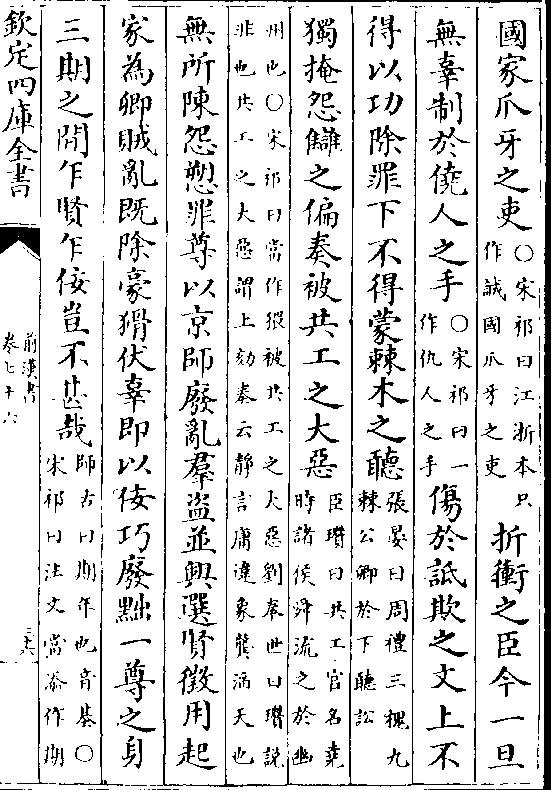 國家爪牙之吏○宋祁曰江浙本只作誠國爪牙之吏折衝之臣今一旦
無辜制於僥人之手○宋祁曰一作仇人之手傷於詆欺之文上不
得以功除罪下不得蒙棘木之聽張晏曰周禮三槐九棘公卿於下聽訟
獨掩怨讎之偏奏被共工之大惡臣瓚曰共工官名堯時諸侯舜流之於幽
州也○宋祁曰當作猥被共工之大惡劉奉世曰瓚說非也共工之大惡謂上劾奏云靜言庸違象龔滔天也
無所陳怨愬罪尊以京師廢亂羣盜並興選賢徵用起
家為卿賊亂既除豪猾伏辜即以佞巧廢黜一尊之身
三期之間乍賢乍佞豈不甚哉師古曰期年也音基○宋祁曰注文當添作期
欽定四庫全書
前漢書
卷七十六
三六